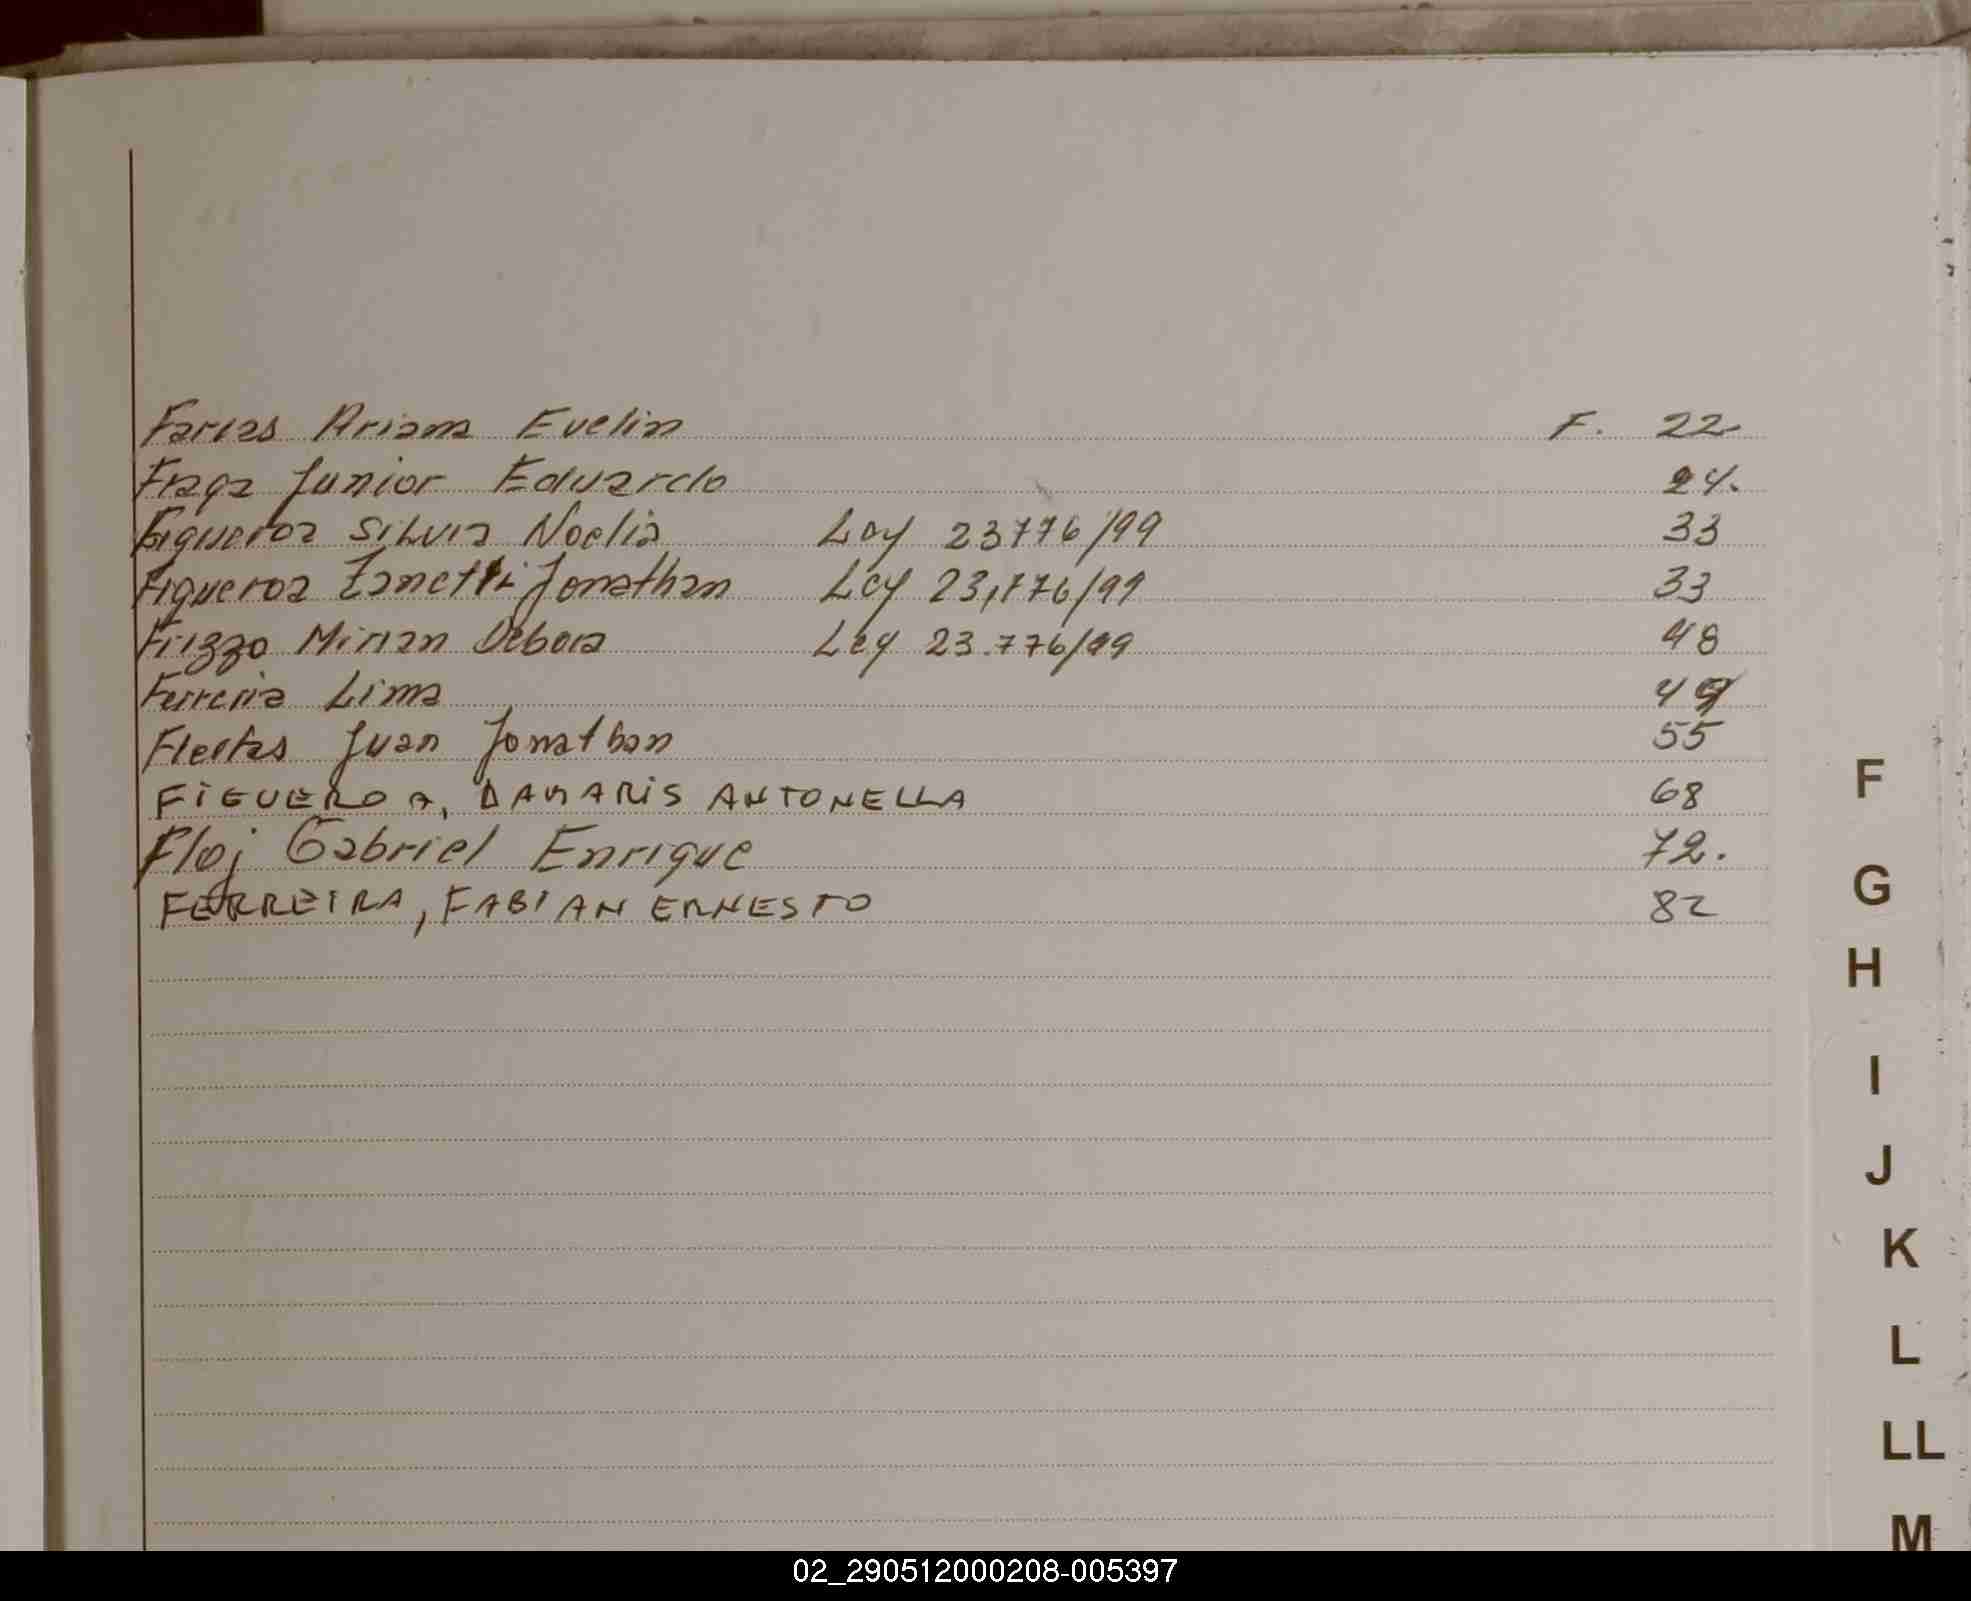 Farias Ariana Evelin F. 22
Fraga Junior Eduardo 24.
Figueroa Silvia Noelia Ley 23776/99 33
Figueroa Zanetti Jonathan Ley 23,776/99 33
Frizzo Mirian Debora Ley 23.776/99 48
Ferreira Lima 49
Fleitas Juan Jonathan 55
FIGUEROA, DAMARIS ANTONELLA 68
Floj Gabriel Enrique 72.
FERREIRA, FABIAN ERNESTO 82
F
G
H
I
J
K
L
LL
M
02_290512000208-005397